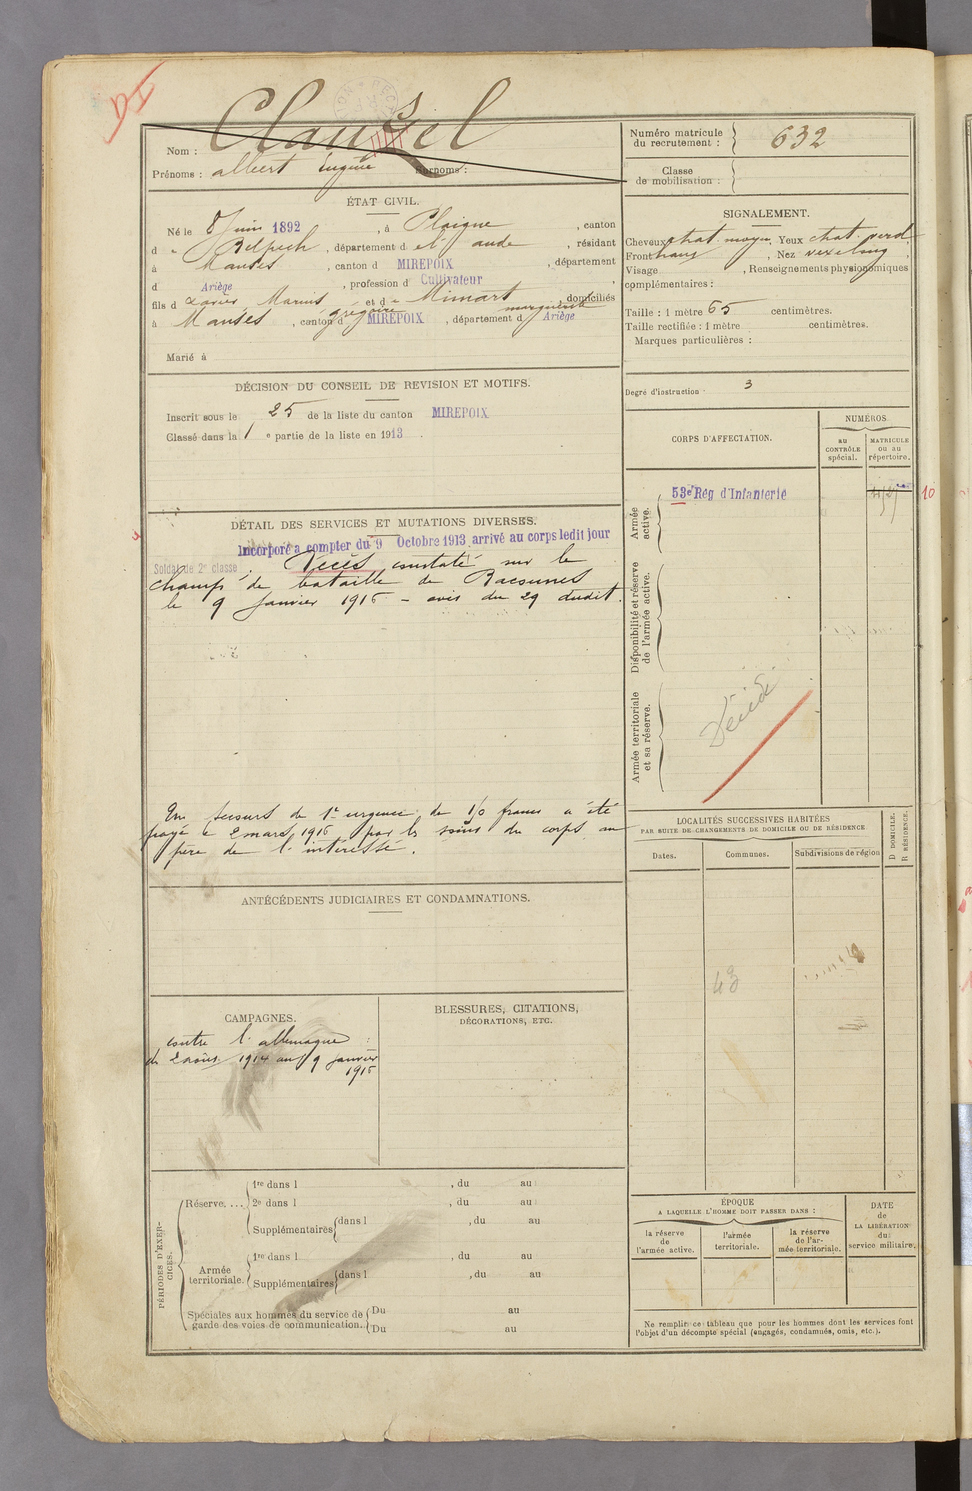 Clauzel
Nom :
Prénoms : Albert Eugène Surnoms :
Numéro matricule
du recrutement : 632
Classe
de mobilisation :
ÉTAT CIVIL.
Né le 8 Juin 1892, à Plaigne, canton
d Belpech, département d el aude, résidant
à Manses, canton d MIREPOIX, département
d Ariège, profession d Cultivateur
fils d Xavier Marius Grégoire et d Mimart marguerite domiciliés
à Manses, canton d MIREPOIX, département d Ariège
Marié à
SIGNALEMENT.
Cheveux chat. moyen, Yeux chat. verd
Front, Nez, 
Visage, Renseignements physionomiques
complémentaires :
Taille : 1 mètre 65 centimètres.
Taille rectifiée : 1 mètre centimètres.
Marques particulières :
Degré d'instruction 3
DÉCISION DU CONSEIL DE REVISION ET MOTIFS.
Inscrit sous le 25 de la liste du canton MIREPOIX
Classé dans la 1e partie de la liste en 1913.
CORPS D'AFFECTATION.
NUMÉROS
au
CONTRÔLE
spécial.
MATRICULE
ou au
répertoire.
Armée
active.
53e Rég d'Infanterie
10
Disponibilité et réserve
de l'armée active.
Armée territoriale
et sa réserve.
Décédé
DÉTAIL DES SERVICES ET MUTATIONS DIVERSES.
Incorporé a compter du 9 Octobre 1913, arrivé au corps ledit jour
Soldat de 2e classe. Décès constaté sur le
champ de bataille de
le 9 Janvier 1915 – avis du 29 dudit.
Un secours de 1re urgence de 150 francs a été
payé le 2 mars 1915 par les soins du corps au
père de l'intéressé.
LOCALITÉS SUCCESSIVES HABITÉES
PAR SUITE DE CHANGEMENTS DE DOMICILE OU DE RÉSIDENCE
Dates.
Communes.
Subdivisions de région
D DOMICILE.
R RÉSIDENCE.
43
ANTÉCÉDENTS JUDICIAIRES ET CONDAMNATIONS.
CAMPAGNES.
contre l'allemagne :
du 2 août 1914 au 9 janvier
1915
BLESSURES, CITATIONS,
DÉCORATIONS, ETC.
PÉRIODES D'EXER-
CICES.
Réserve....
1re dans l, du au
2e dans l, du au
Supplémentaires dans l, du au
Armée
territoriale.
1re dans l, du au
Supplémentaires dans l, du au
Spéciales aux hommes du service de
garde des voies de communication.
Du au
Du au
ÉPOQUE
A LAQUELLE L'HOMME DOIT PASSER DANS :
la réserve
de
l'armée active.
l'armée
territoriale.
la réserve
de l'ar-
mée territoriale.
DATE
de
LA LIBÉRATION
du
service militaire.
Ne remplir ce tableau que pour les hommes dont les services font
l'objet d'un décompte spécial (engagés, condamnés, omis, etc.).